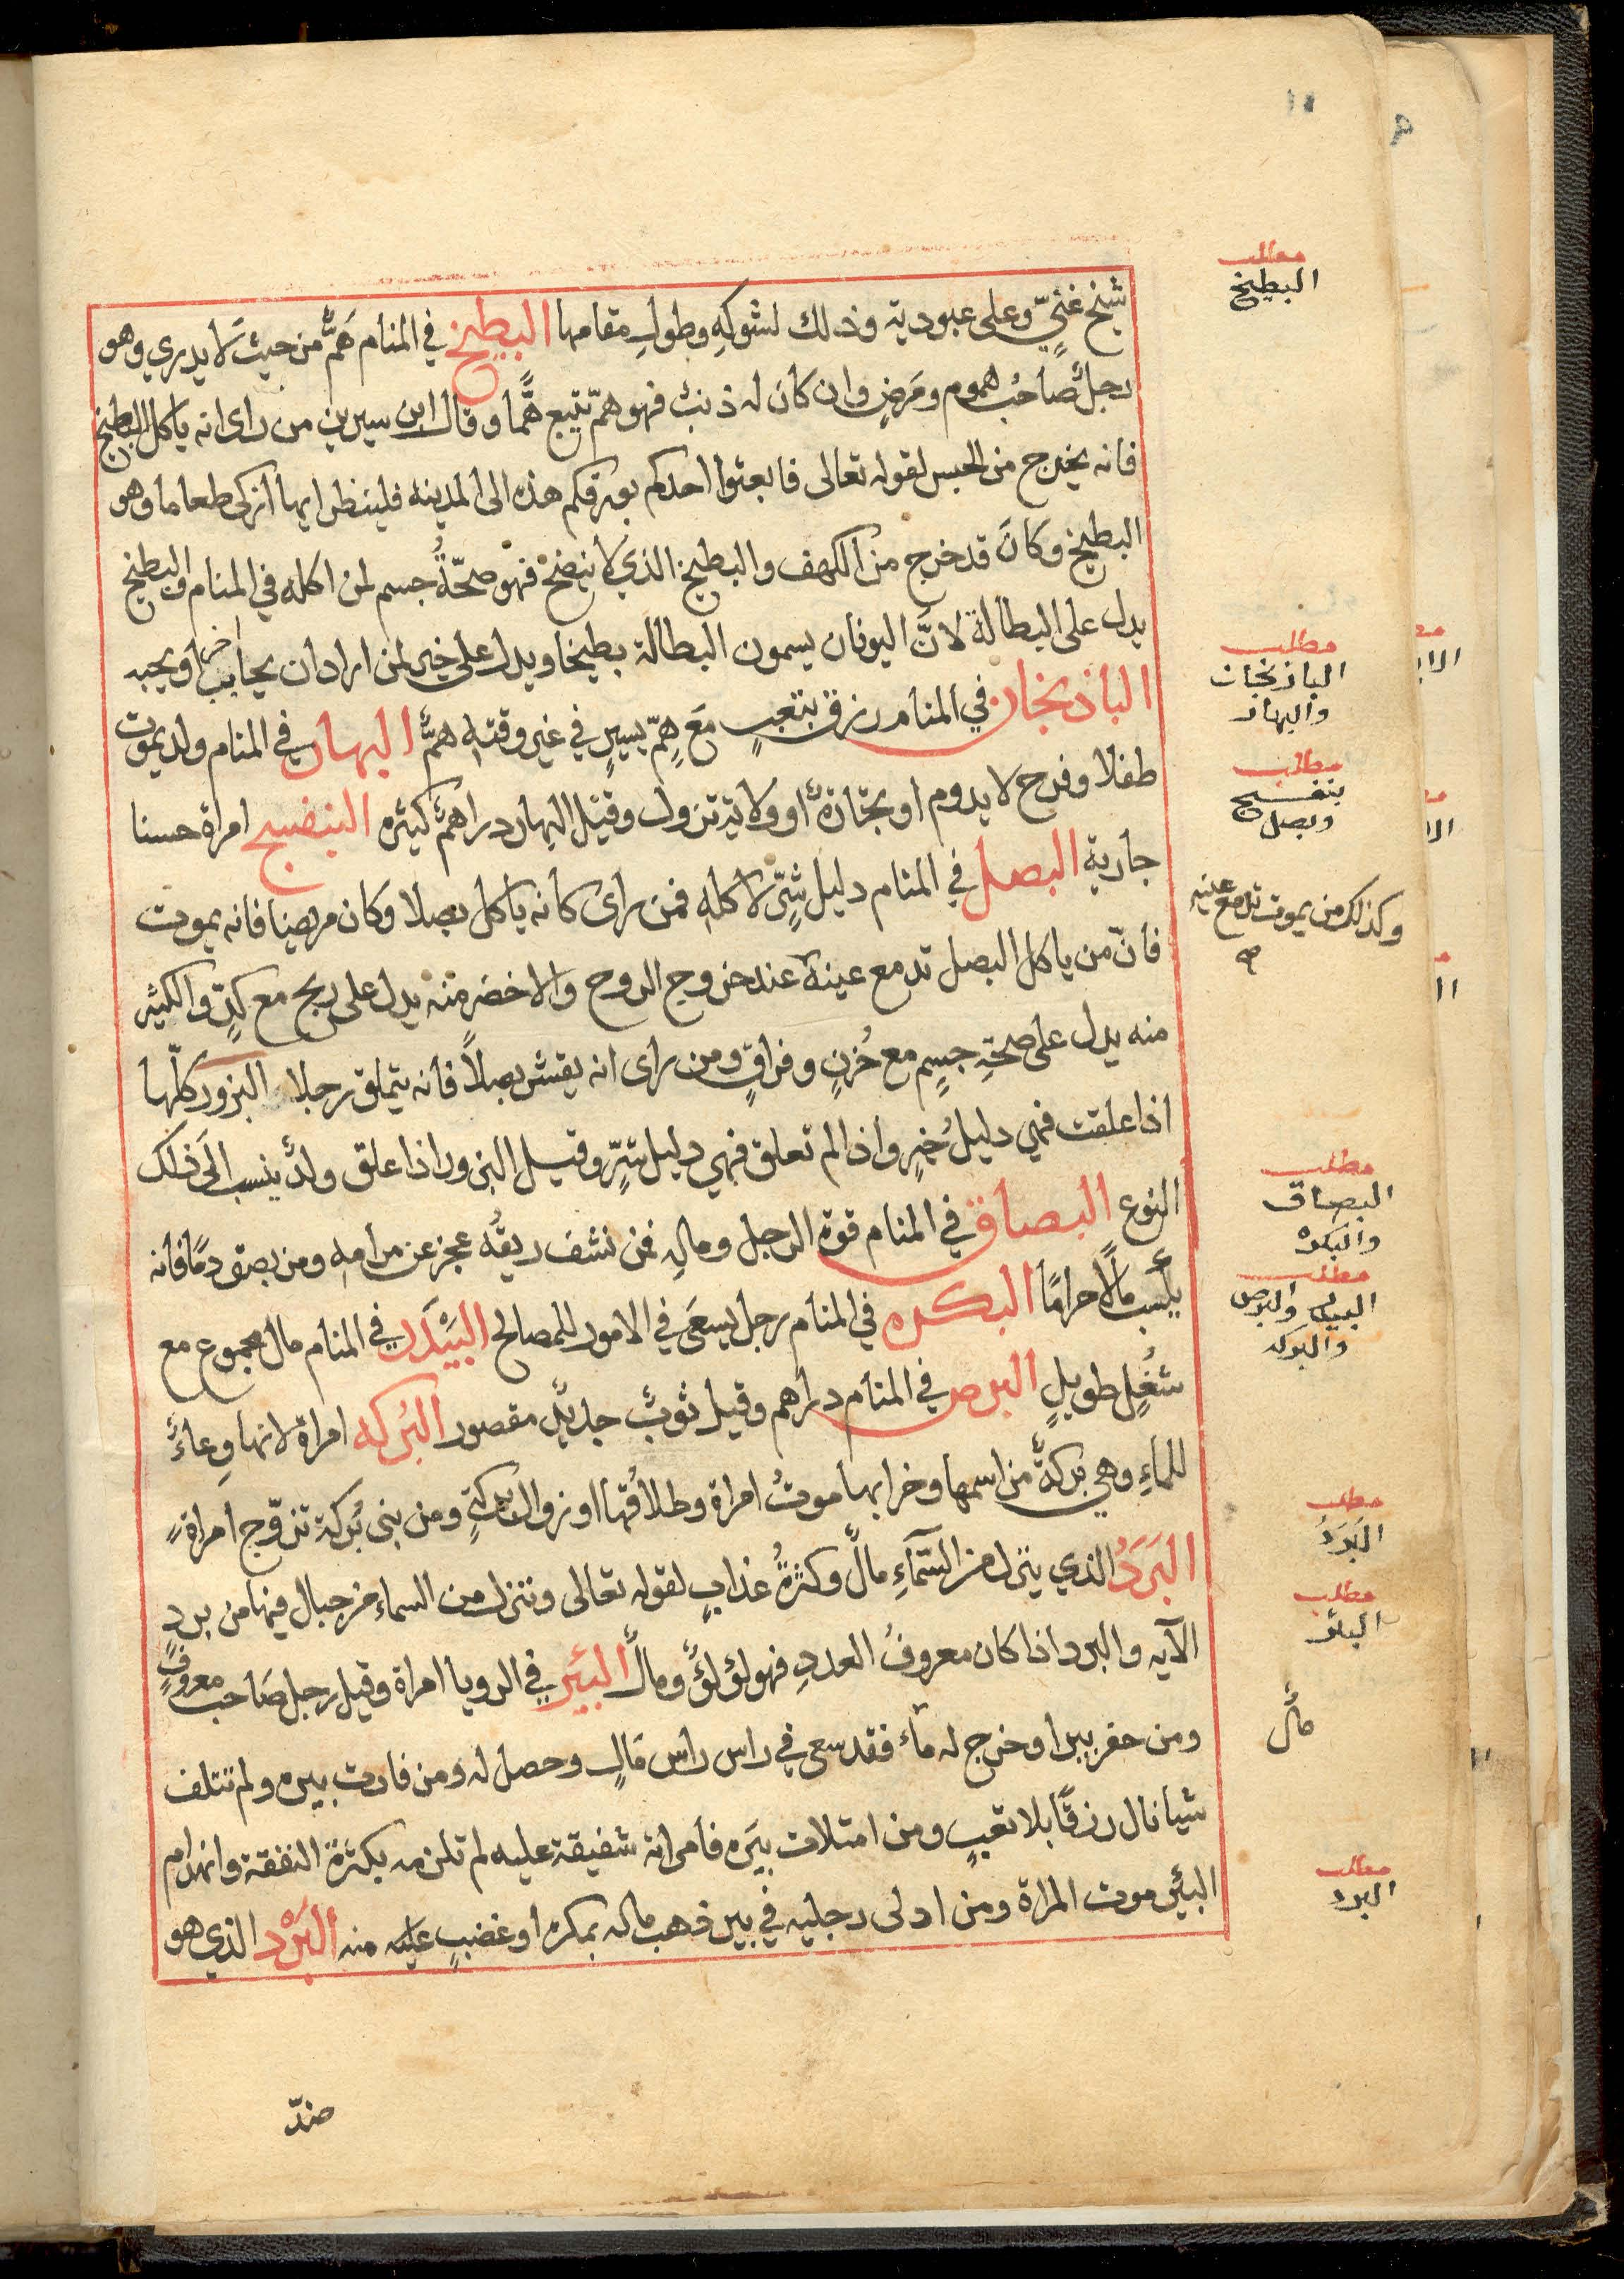 شيخ غنيّ وعلى عبودية وذلك لشوكه وطول مقامها البطيخ في المنام همٌّ من حيث لا يدري وهو
رجل صاحب هموم ومرض وان كان له ذنب فهو همّ يتبع همًّا وقال ابن سيرين من راى انه ياكل البطيخ
فانه يخرج من الحبس لقوله تعالى فابعثوا احدكم بورقكم هذه الى المدينة فلينظر ايها ازكى طعاما وهو
البطيخ وكان قد خرج من الكهف والبطيخ الذي لا ينضج فهو صحّةُ جسم لمن اكله في المنام والبطيخ
يدل على البطالة لانَّ اليونان يسمون البطالة بطيخا ويدل على خير لمن اراد ان يحابب اخر او يحبه
الباذنجان في المنام رزق بتعبٍ مَع هِمّ يسيرٍ في غير وقته همٌّ البهار في المنام ولد يموت
طفلا وفرح لا يدوم او تجارةٌ او ولاية تزول وقيل البهار دراهمٌ كثيره البنفسج امراة حسنا
جارية البصل في المنام دليل شرّ لاكله فمن راى كانه ياكل بصلا وكان مريضا فانه يموت
فانّ من ياكل البصل تدمع عينه عند خروج الروح والاخضر منه يدل على ربح مع كدٍّ والكثير
منه يدل على صحّةِ جسِمٍ مع حُزنٍ وفراقٍ ومن راى انه يقشر بصلاً فانه يتملق رجلا البزور كلّها
اذا علقت فهي دليلُ خيرٍ واذا لم تعلق فهي دليل شرّ وقيل البزور اذا علق ولدٌ ينسب الى ذلك
النوع البصاق في المنام قوة الرجل وماله فمن نشف ريقُه عجز عن مرامه ومن بصق دمًا فانه
يكسب مالاً حرامًا البكره في المنام رجل يسعَى في الامور للمصالح البَيْدَر في المنام مال مجموع مع
شُغْلٍ طويلٍ البرص في المنام دراهم وقيل ثوبٌ جديدٌ مقصور البركه امراة لانها وِعاءٌ
للماءِ وهي بركةٌ من اسمها وخرابها موتُ امراة وطلاقُها او زوال بركتهٍ ومن بنى بُركة تزوّج امراةً
البَرَدُ الذي ينزل من السَّمآءِ مالٌ وكثرةُ عذابٍ لقوله تعالى وننزل من السماء من جبال فيها من برد
الآيه والبرد اذا كان معروفُ العددِ فهو لؤلؤٌ ومالٌ البئير في الرويا امراة وقيل رجل صَاحب معروفٍ
ومن حفر بيرا وخرج له مآء فقد سعى في راس راس مَالٍ وحصل له ومن فارت بيره ولم تتلف
شيا نال رزقًا بلا تعبٍ ومن امتلات بيَره فامراته شفيقة عليه لم تلزمه بكثرةُ النفقة وانهدام
البئير موت المراة ومن ادلى رجليه في بير ذهب ماله بمكره او غضبٍ عليه منه البَرْد الذي هو
ضدّ
مطلب
البطيخ
مطلب
الباذنجان
والبهار
مطلب
بنفسج
وبصل
وكذلك من يموت تدمع عينيه
صح
مطلب
البصاق
والبكره
مطلب
البيدر والبرص
والبركه
مطلب
البَرَدُ
مطلب
البئر
مالٌ
مطلب
البرد